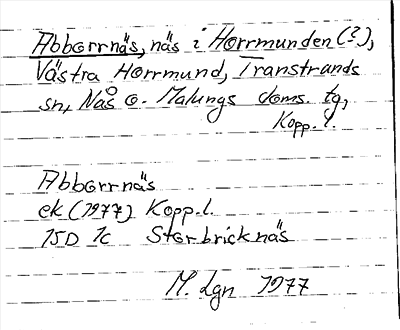 Abborrnäs, näs i Horrmunden (?),
Västra Horrmund, Transtrands
sn, Nås o. Malungs doms. tg,
Kopp. l.
Abborrnäs
ek (1977) Kopp. l.
15D 1c Storbricknäs
M. Lgn 1977